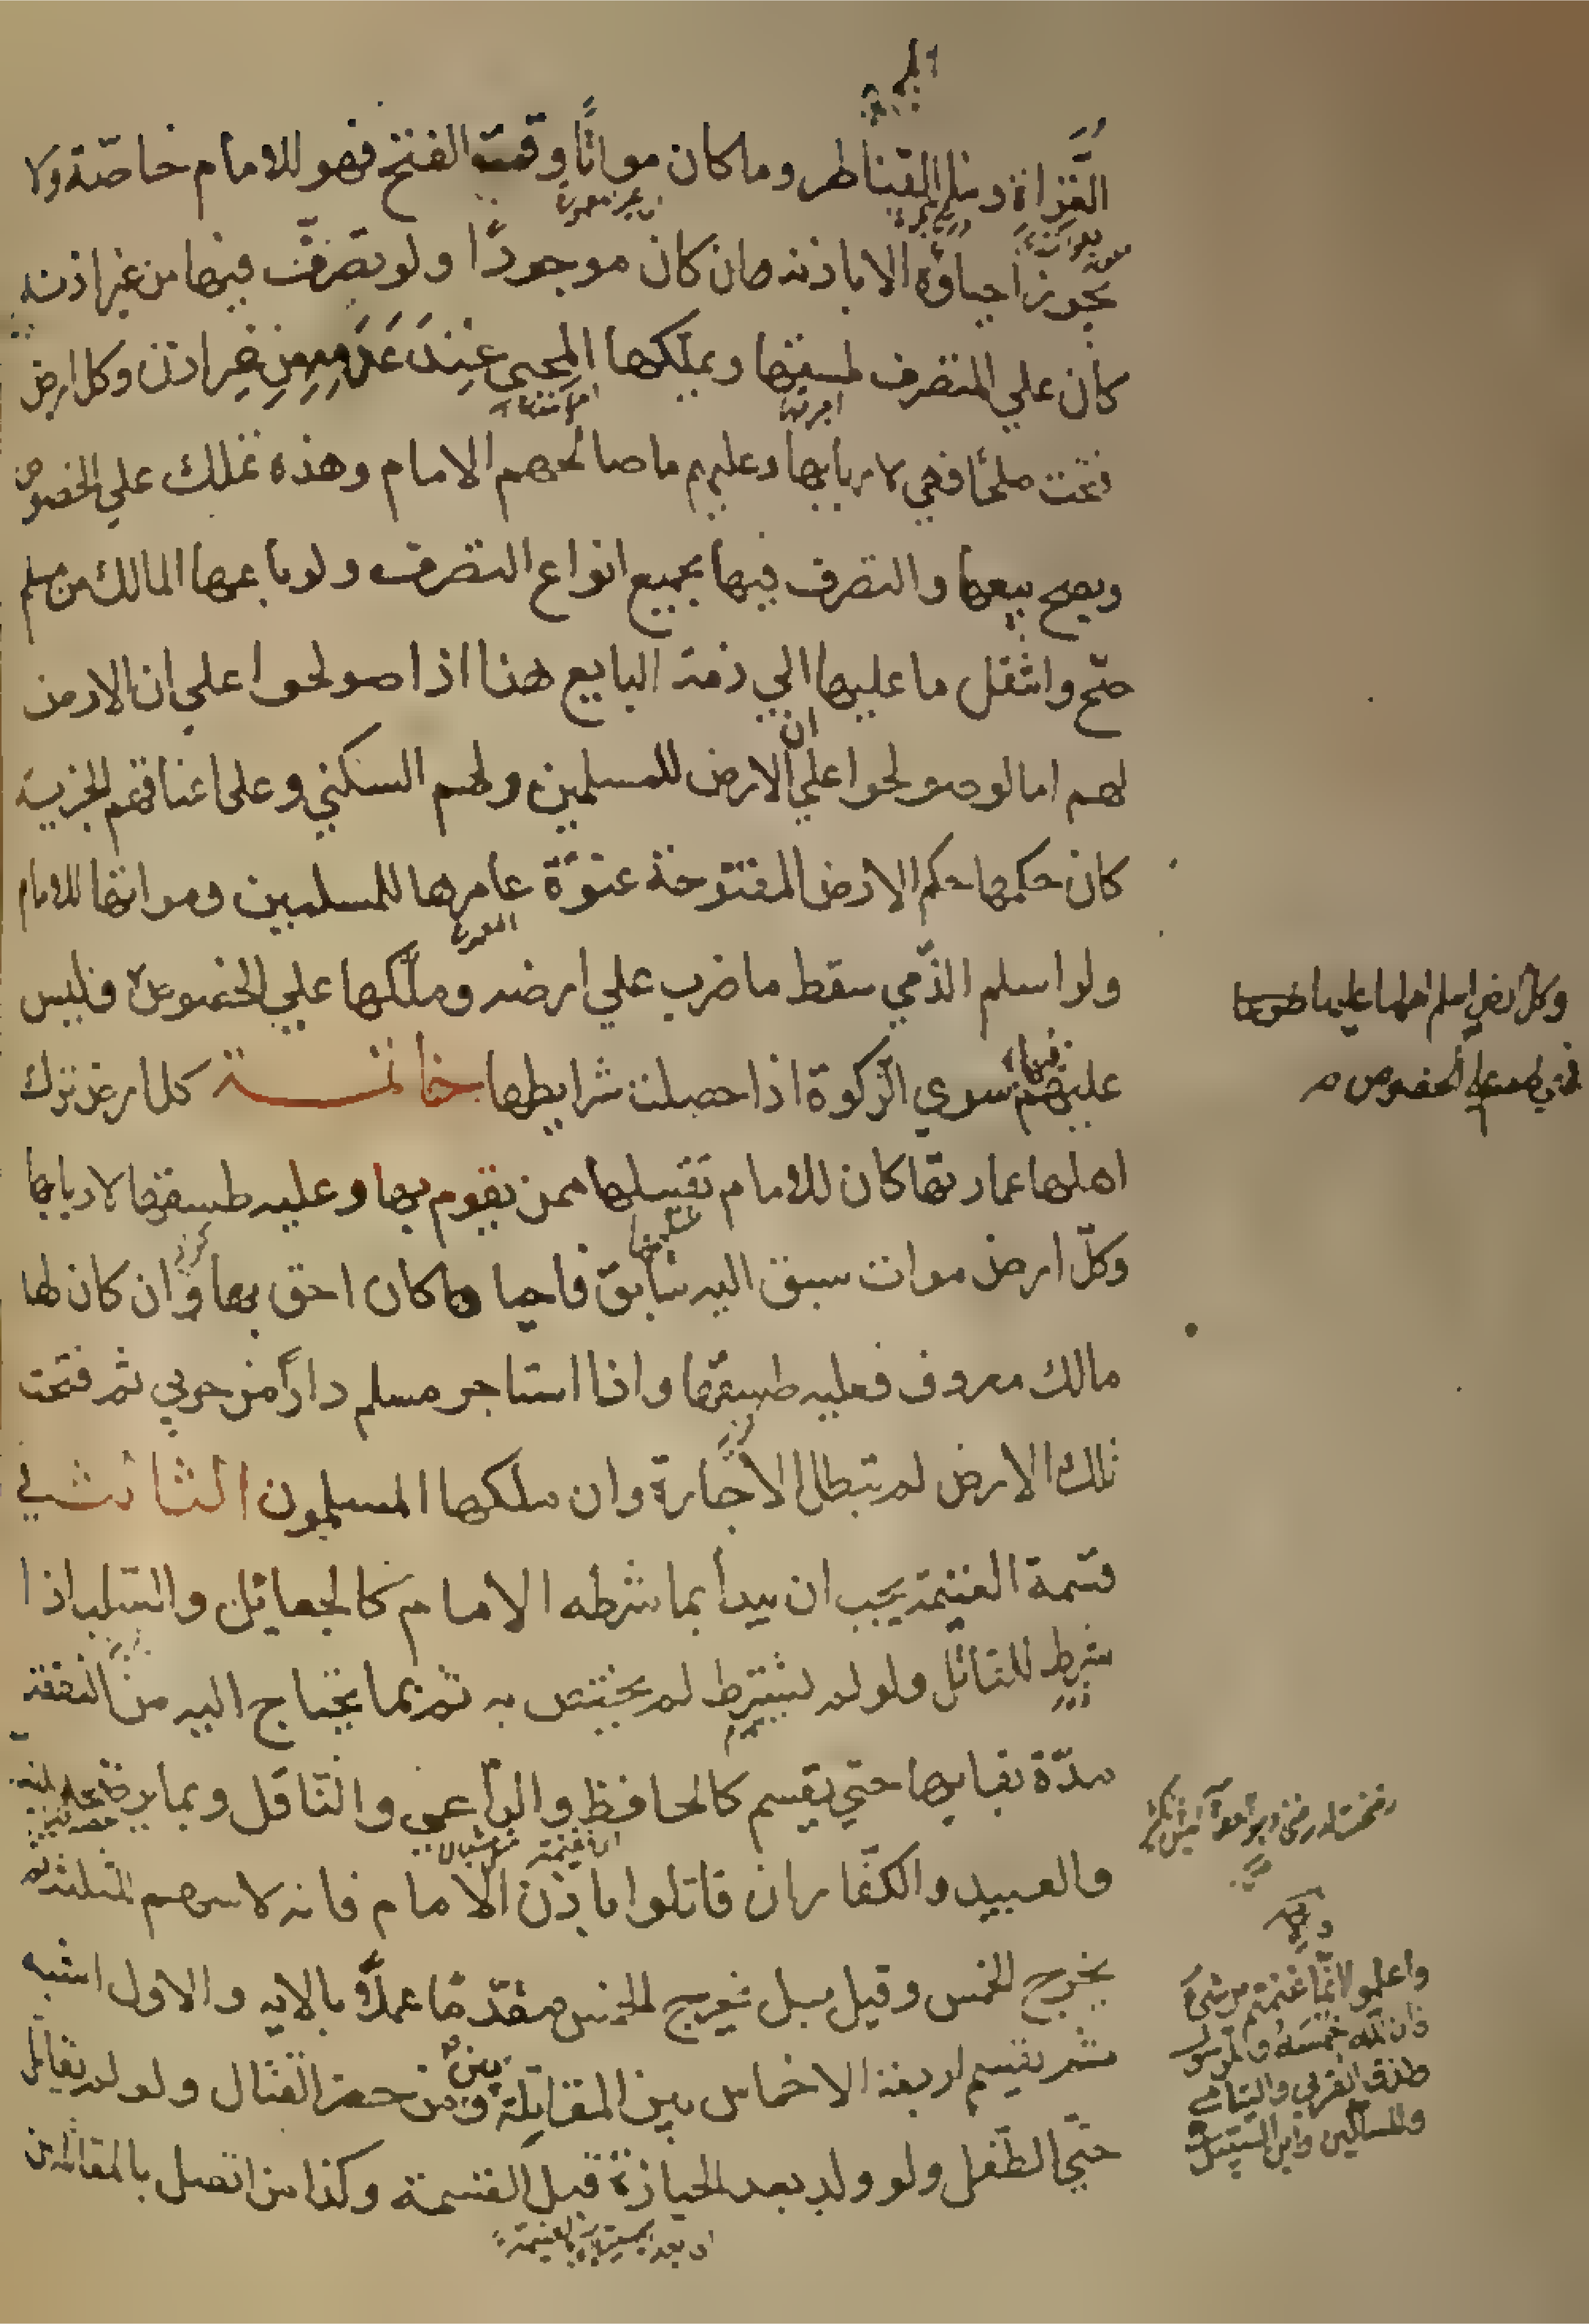 الغزاة وبناء القناطر وما كان مواتًا وقت الفتح فهو للامام خاصّة ولا
يجوز احياؤه الا باذنه صان كان موجودًا ولو تصرّف فيها من غير اذنه
كان علي المتصرف طسقها ويملكها المحيي عِندَ عَدَمِهِ مِن غير اذن وكل ارض
فتحت صلحًا فهي لاربابها وعليهم ما صالحهم الامام وهذه تملك علي الخصوص
ويصح بيعها والتصرف فيها بجميع انواع التصرف ولو باعها المالك من مسلم
صحّ وانتقل ما عليها الي ذمة البايع هذا اذا صولحوا علي ان الارض
لهم اما لو صولحوا علي ان الارض للمسلمين ولهم السكني وعلي اعناقهم الجزية
كان حكمها حكم الارض المفتوحة عنوة عامرها للمسلمين ومواتها للامام
ولو اسلم الذّمي سقط ما ضرب علي ارضه وملّكها علي الخصوص وليس
وكل ارض اسلم اهلها عليها طوعا
فهي لهم علي الخصوص صر
عليهم فيها سوي الزكوة اذا حصلت شرايطها خاتمة كل ارض ترك
اهلها عمارتها كان للامام تقبيلها ممن يقوم بها وعليه طسقها لاربابها
وكلّ ارض موات سبق اليه سابق فاحياها كان احق بها وان كان لها
مالك معروف فعليه طسقها واذا استاجر مسلم دارًا من حربي ثم فتحت
تلك الارض لم تبطل الاجارة وان ملكها المسلمون الثالث في
قسمة الغنيمة يجب ان يبدأ بما شرطه الامام كالجعائل والسلب اذا
شرط للقاتل ولو لم يشترط لم يختص به ثم بما يحتاج اليه من النفقة
مدّة بقايها حتي يقسم كالحافظ والراعي والناقل وبما يرضخه للنساء
والعبيد والكفّار ان قاتلوا باذن الامام فانه لا سهم للثلثة ثم
يخرج الخمس وقيل بل يخرج الخمس مقدّمًا عملًا بالايه والاول اشبه
واعلموا انّما غنمتم من شيء
فان لله خُمُسَهُ وللرسول
ولذي القربي واليتامي
والمساكين وابن السبيل
ثم يقسم اربعة الاخماس بين المقاتلة وبين من حضر القتال ولو لم يقاتل
حتّي الطّفل ولو ولد بعد الحيازة قبل القسمة وكذا من اتصل بالمقاتلين